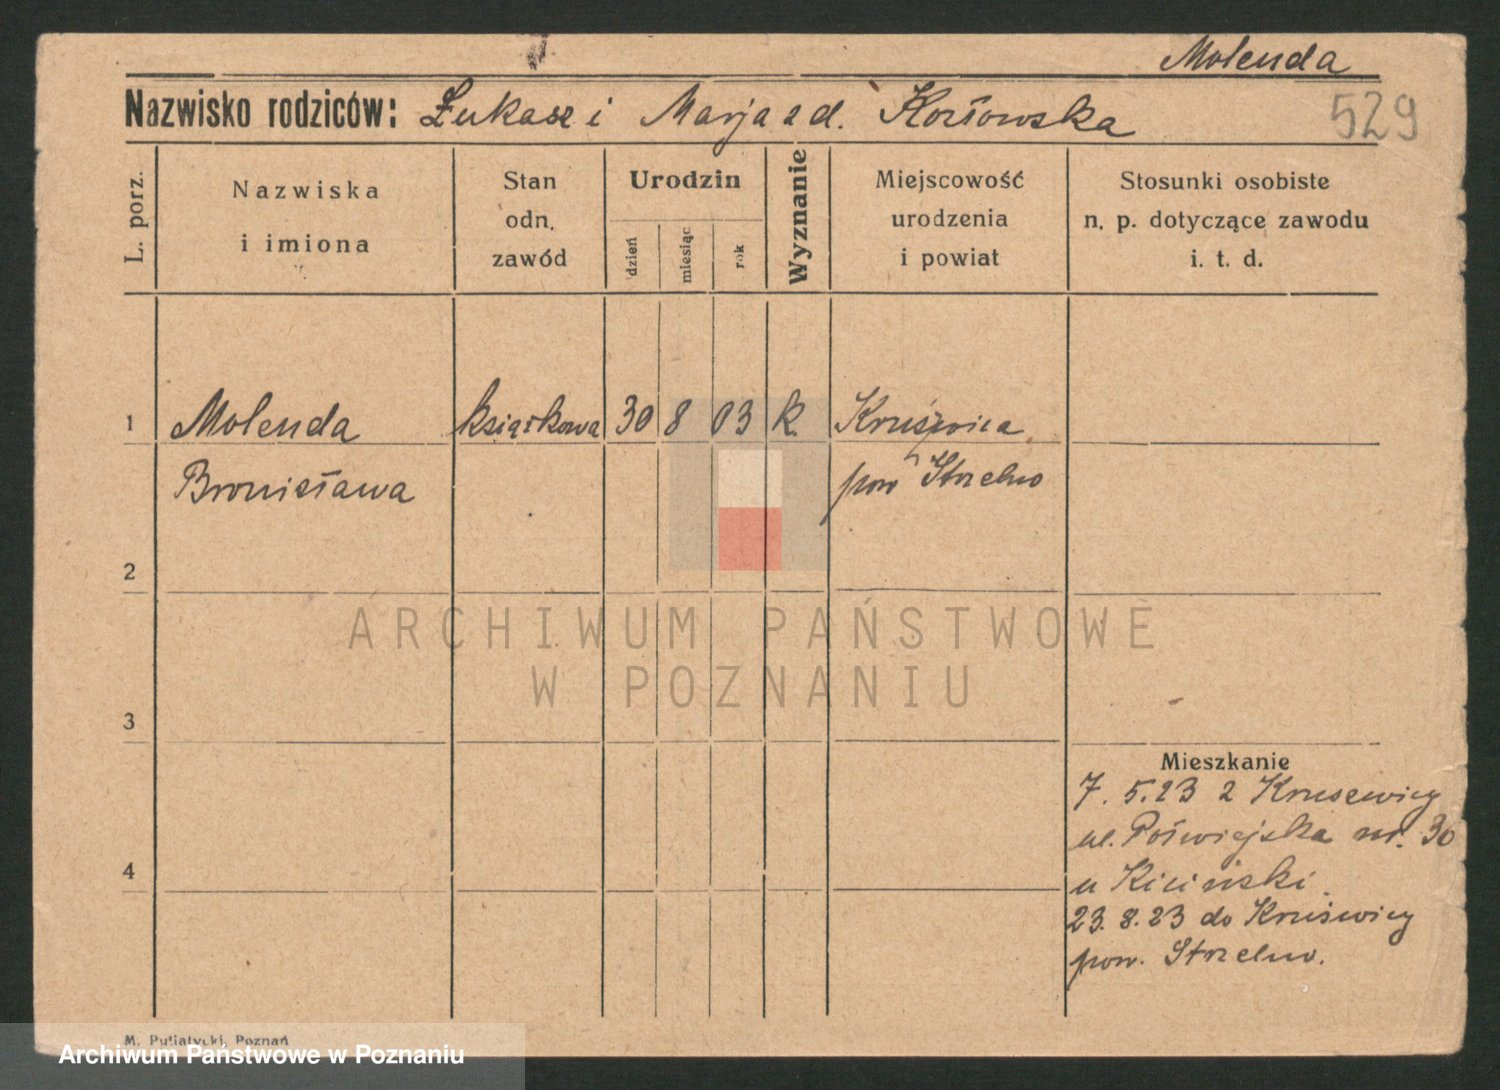 Molenda
Nazwisko rodziców: Łukasz i Marja z d. Kozłowska
529
L. porz.
Nazwiska
i imiona
Stan
odn.
zawód
Urodzin
dzień
miesiąc
rok
Wyznanie
Miejscowość
urodzenia
i powiat
Stosunki osobiste
n. p. dotyczące zawodu
i. t. d.
1 Molenda książkowa 30 8 03 k. Kruświca
Bronisława pow Strzelno
2
3
4
ARCHIWUM PAŃSTWOWE
W POZNANIU
Mieszkanie
7. 5.23 z Kruszwicy
ul. Poświejska nr. 30
u Kiciński.
23. 8.23 do Kruświcy
pow. Strzelno.
M. Putiatycki, Poznań
Archiwum Państwowe w Poznaniu